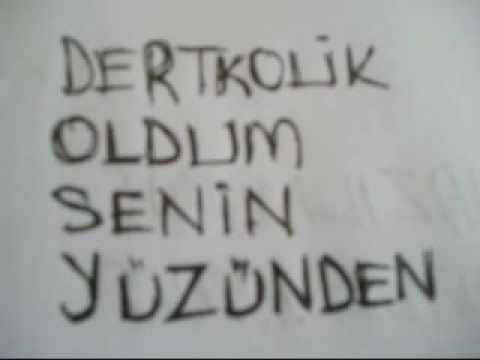 DERTKOLiK
OLDUM
SENiN
YÜZÜNDEN